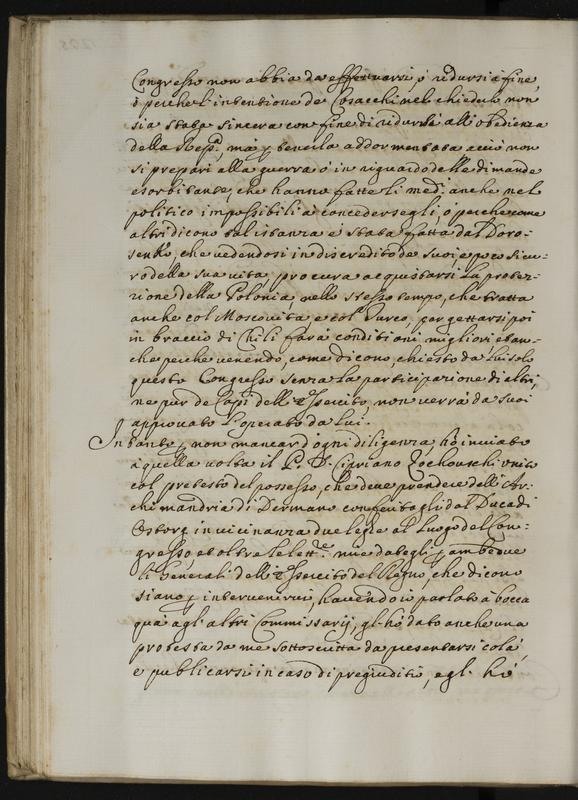 Congresso non abbia da effettuarsi, ò ridursi à fine,
ò perche l'intentione de Cosacchi nel chiederlo non
sia stata sincera con fine di ridursi all'obedienza
della Rep.ca, ma p tenerla addormentata acciò non
si prepari alla guerra ò in riguardo delle dimande
esorbitante, che hanno fatte li med.i anche nel
politico impossibili à concedersegli, ò perche come
altri dicono tal'istanza è stata fatta dal Doro=
senko, che vedendosi in discredito de suoi, e poco sicu=
ro della sua vita, procura acquistarsi la protet=
tione della Polonia, nello stesso tempo, che tratta
anche col Moscovita, e col Turco, per gettarsi poi
in braccio di chi li farà conditioni migliori, et an=
che perche venendo, come dicono, chiesto da lui solo
questo Congresso senza la participatione di altri,
ne pur de Capi dell'Essercito, non verrà da suoi
approvato l'operato da lui.
Intanto p non mancar d'ogni diligenza, hò inviato
à quella volta il P. D. Cipriano Zochouschi unito
col pretesto del possesso, che deve prendere dell'Ar=
chimandria di Dermano conferitagli dal Duca di
Ostorg in vicinanza due leghe al luogo del Con=
gresso, et oltre le lett.re mie dategli p ambedue
li Generali dell'Essercito del Regno, che dicono
siano p intervenirvi, havendo io parlato à bocca
quà agl'altri Commissarij, gl'hò dato anche una
protesta da me sottoscritta da presentarsi colà,
e publicarsi in caso di pregiuditio, egl'hò